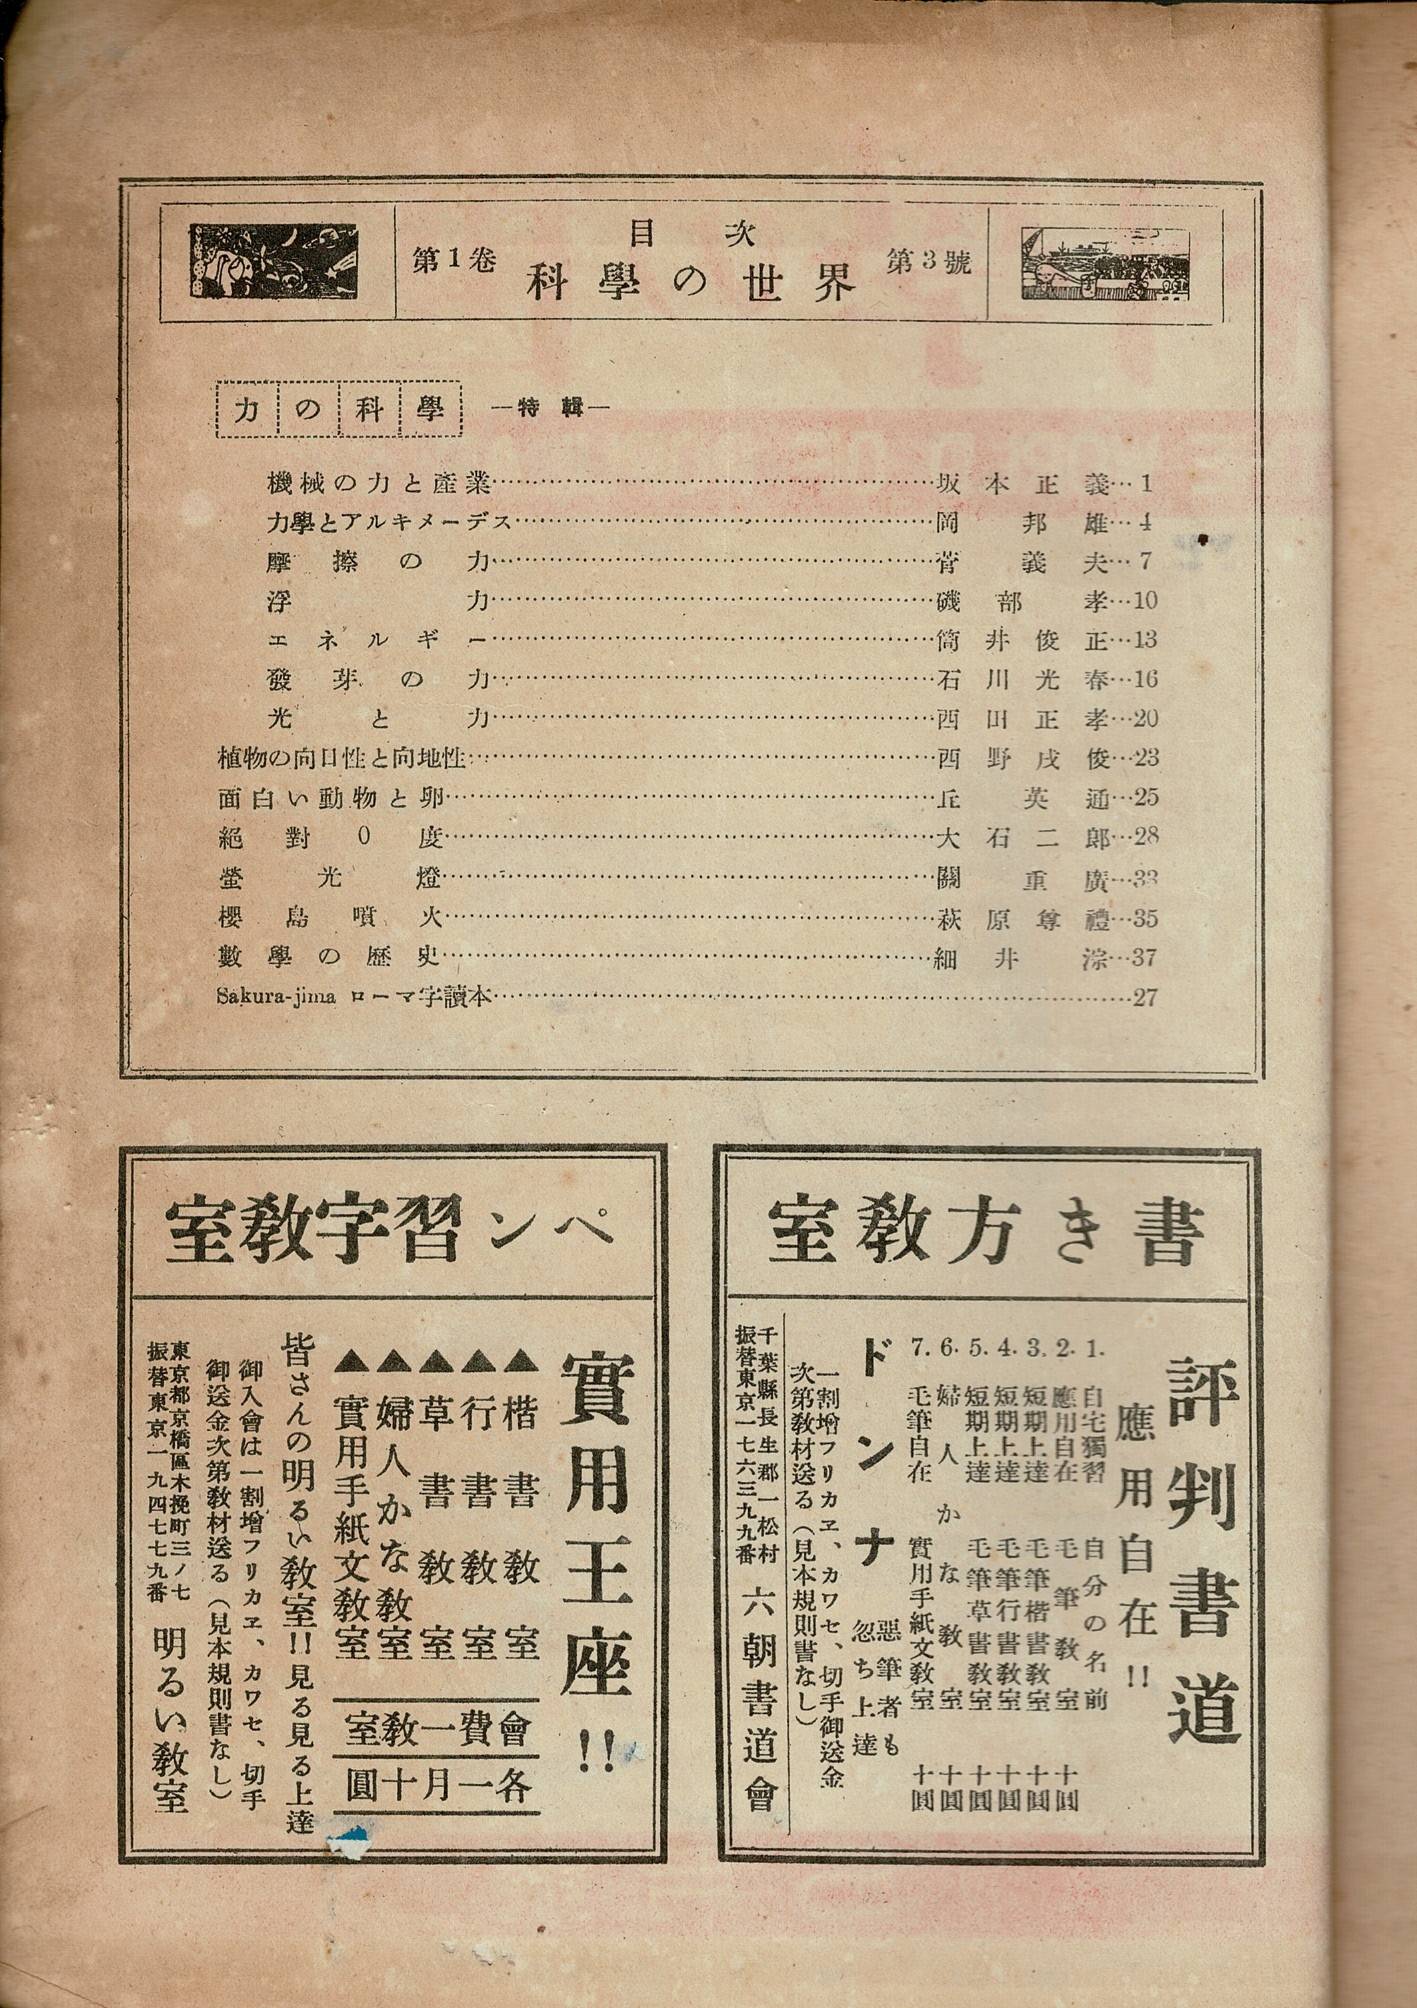 目次
第1卷 科學の世界 第3號
力の科學 ―特輯―
機械の力と產業……坂本正義…1
力學とアルキメーデス……岡邦雄…4
摩擦の力……菅義夫…7
浮力……磯部孝…10
エネルギー……筒井俊正…13
發芽の力……石川光春…16
光と力……西田正孝…20
植物の向日性と向地性……西野戌俊…23
面白い動物と卵……丘英通…25
絕對0度……大石二郎…28
螢光燈……關重廣…33
櫻島噴火……萩原尊禮…35
數學の歷史……細井淙…37
Sakura-jima ローマ字讀本……27
書き方敎室
評判書道
應用自在!!
1. 自宅獨習 自分の名前
2. 應用自在 毛筆敎室 十圓
3. 短期上達 毛筆楷書敎室 十圓
4. 短期上達 毛筆行書敎室 十圓
5. 短期上達 毛筆草書敎室 十圓
6. 婦人かな敎室 十圓
7. 毛筆自在 實用手紙文敎室 十圓
ドンナ 惡筆者も忽ち上達
一割增フリカヱ、カワセ、切手御送金
次第敎材送る(見本規則書なし)
千葉縣長生郡一松村
振替東京一七六三九九番
六朝書道會
ペン習字敎室
實用王座!!
▲楷書敎室
▲行書敎室
▲草書敎室
▲婦人かな敎室
▲實用手紙文敎室
會費一敎室
各一月十圓
皆さんの明るい敎室!!見る見る上達
御入會は一割增フリカヱ、カワセ、切手
御送金次第敎材送る(見本規則書なし)
東京都京橋區木挽町三ノ七
振替東京一九四七七九番
明るい敎室